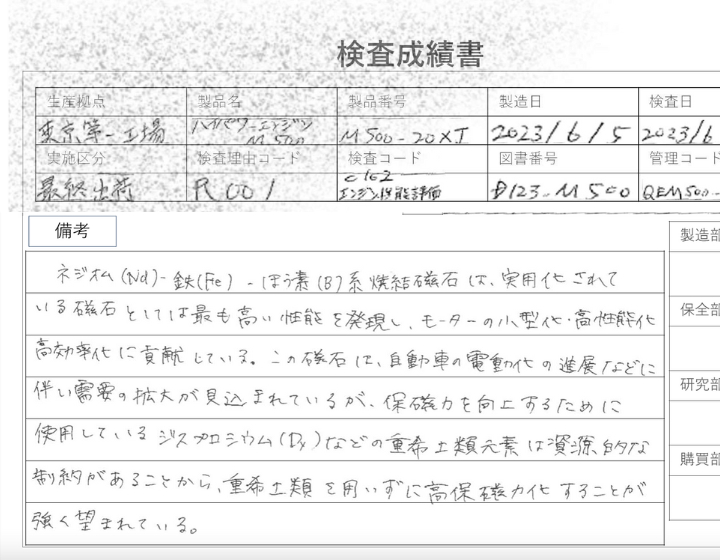 検査成績書
生産拠点 製品名 製品番号 製造日 検査日
東京第一工場 ハイパワーエンジン M500 M500-20XJ 2023/6/5 2023/6
実施区分 検査理由コード 検査コード 図書番号 管理コード
最終出荷 R001 C162 エンジン性能評価 D123-M500 QEM500-
備考
ネジオム(Nd)-鉄(Fe)-ほう素(B)系焼結磁石は、実用化されて
いる磁石としては最も高い性能を発現し、モーターの小型化・高性能化
高効率化に貢献している。この磁石は、自動車の電動化の進展などに
伴い需要の拡大が見込まれているが、保磁力を向上するために
使用しているジスプロシウム(Dy)などの重希土類元素は資源的な
制約があることから、重希土類を用いずに高保磁力化することが
強く望まれている。
製造部
保全部
研究部
購買部